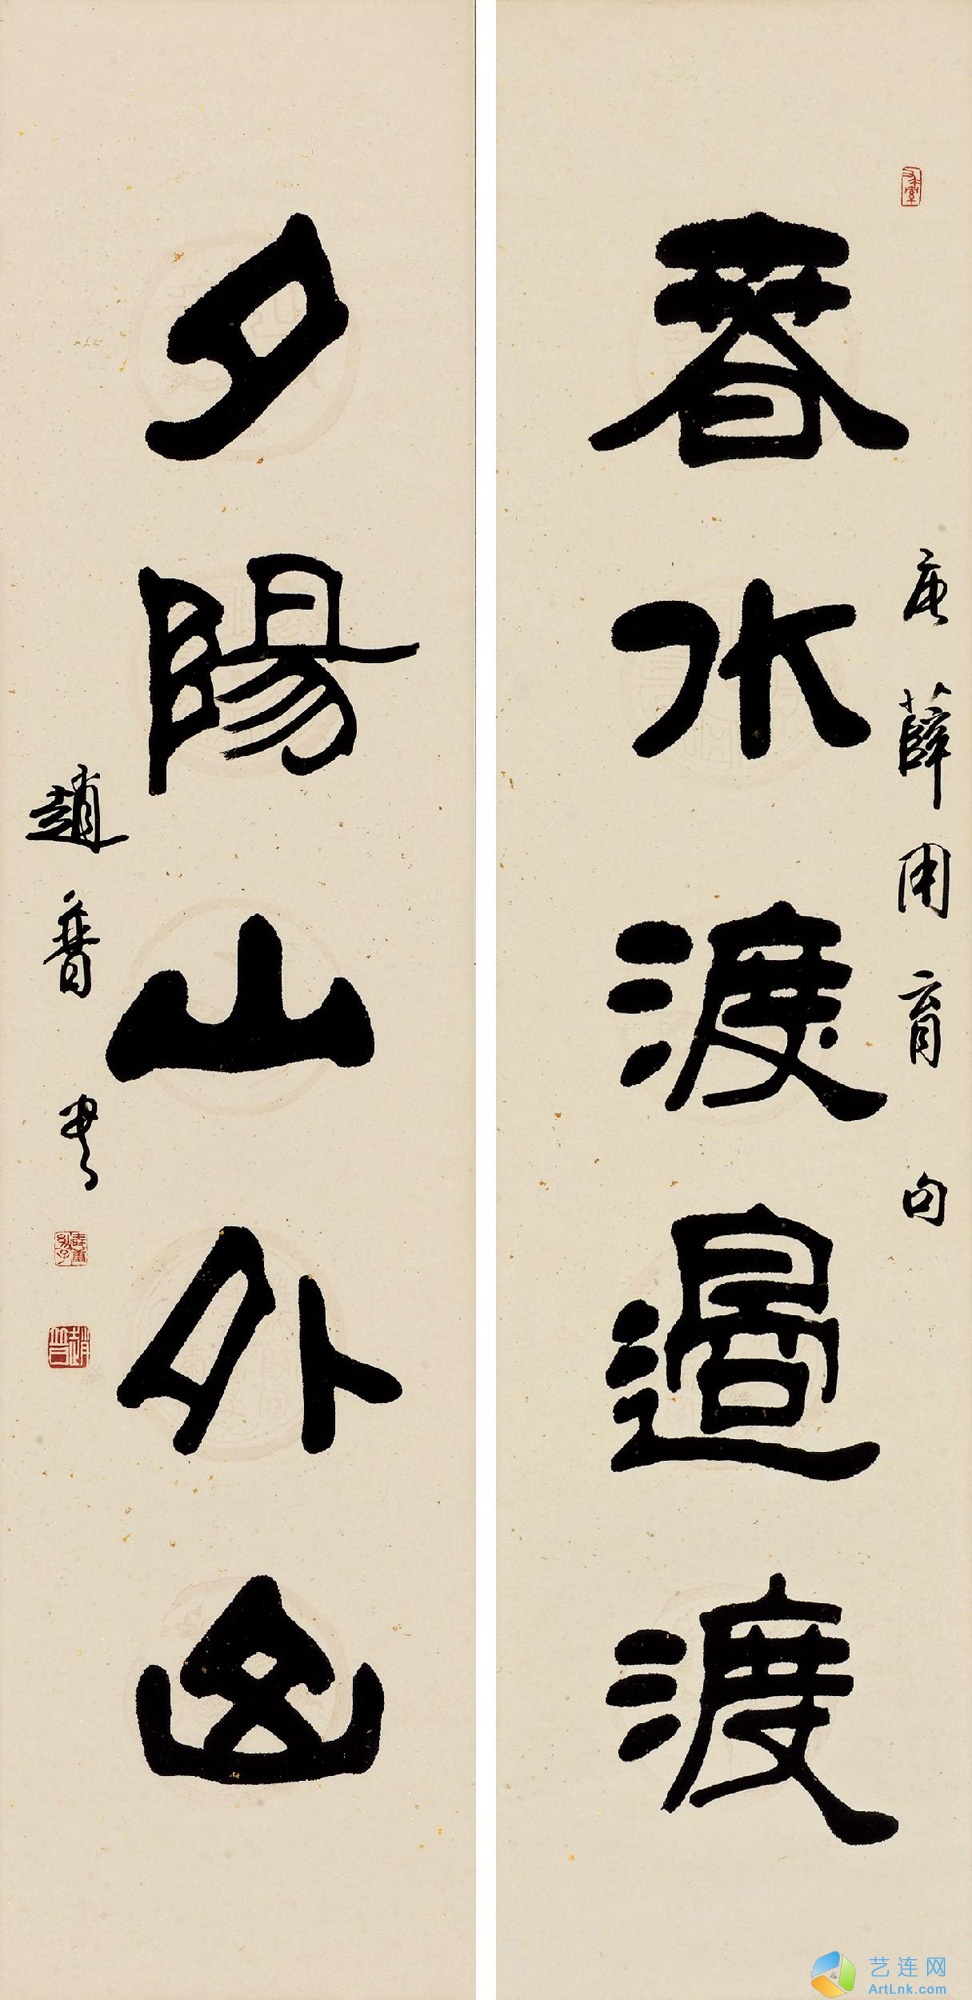 春水渡過渡
薛用育句
夕陽山外山
趙普書
趙普
艺连网
ArtLnk.com